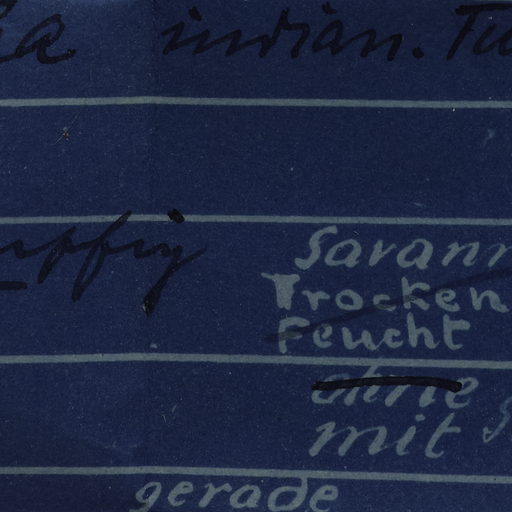 indian.
Savann
Trocken
Feucht
ohne
mit
gerade